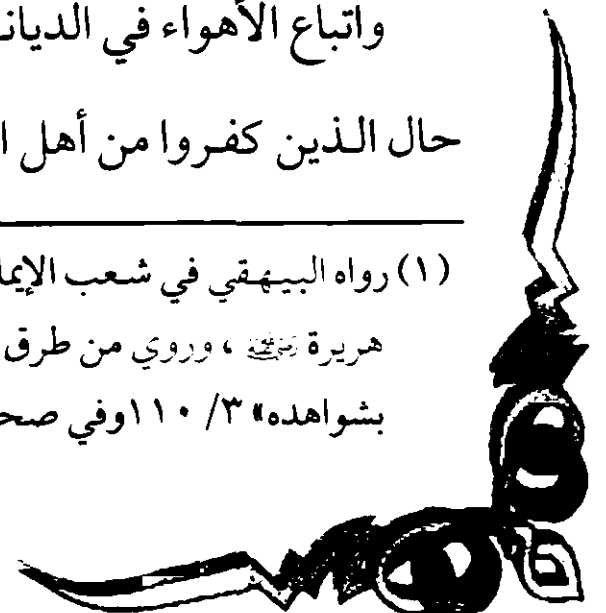 واتباع الأهواء في الديان
حال الذين كفروا من أهل ا
(١) رواه البيهقي في شعب الإيما
هريرة رضي الله عنه ، وروي من طرق
بشواهده» ٣/ ١١٠ وفي صح